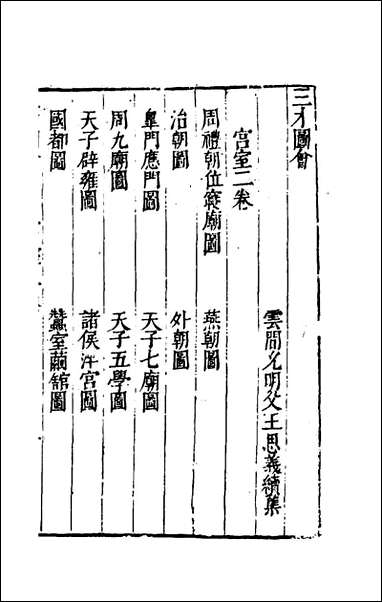 三才圖會
雲間允明父王思義續集
宮室二卷
周禮朝位寢廟圖
燕朝圖
治朝圖
外朝圖
皐門應門圖
天子七廟圖
周九廟圖
天子五學圖
天子辟雍圖
諸侯泮宮圖
國都圖
蠶室繭舘圖